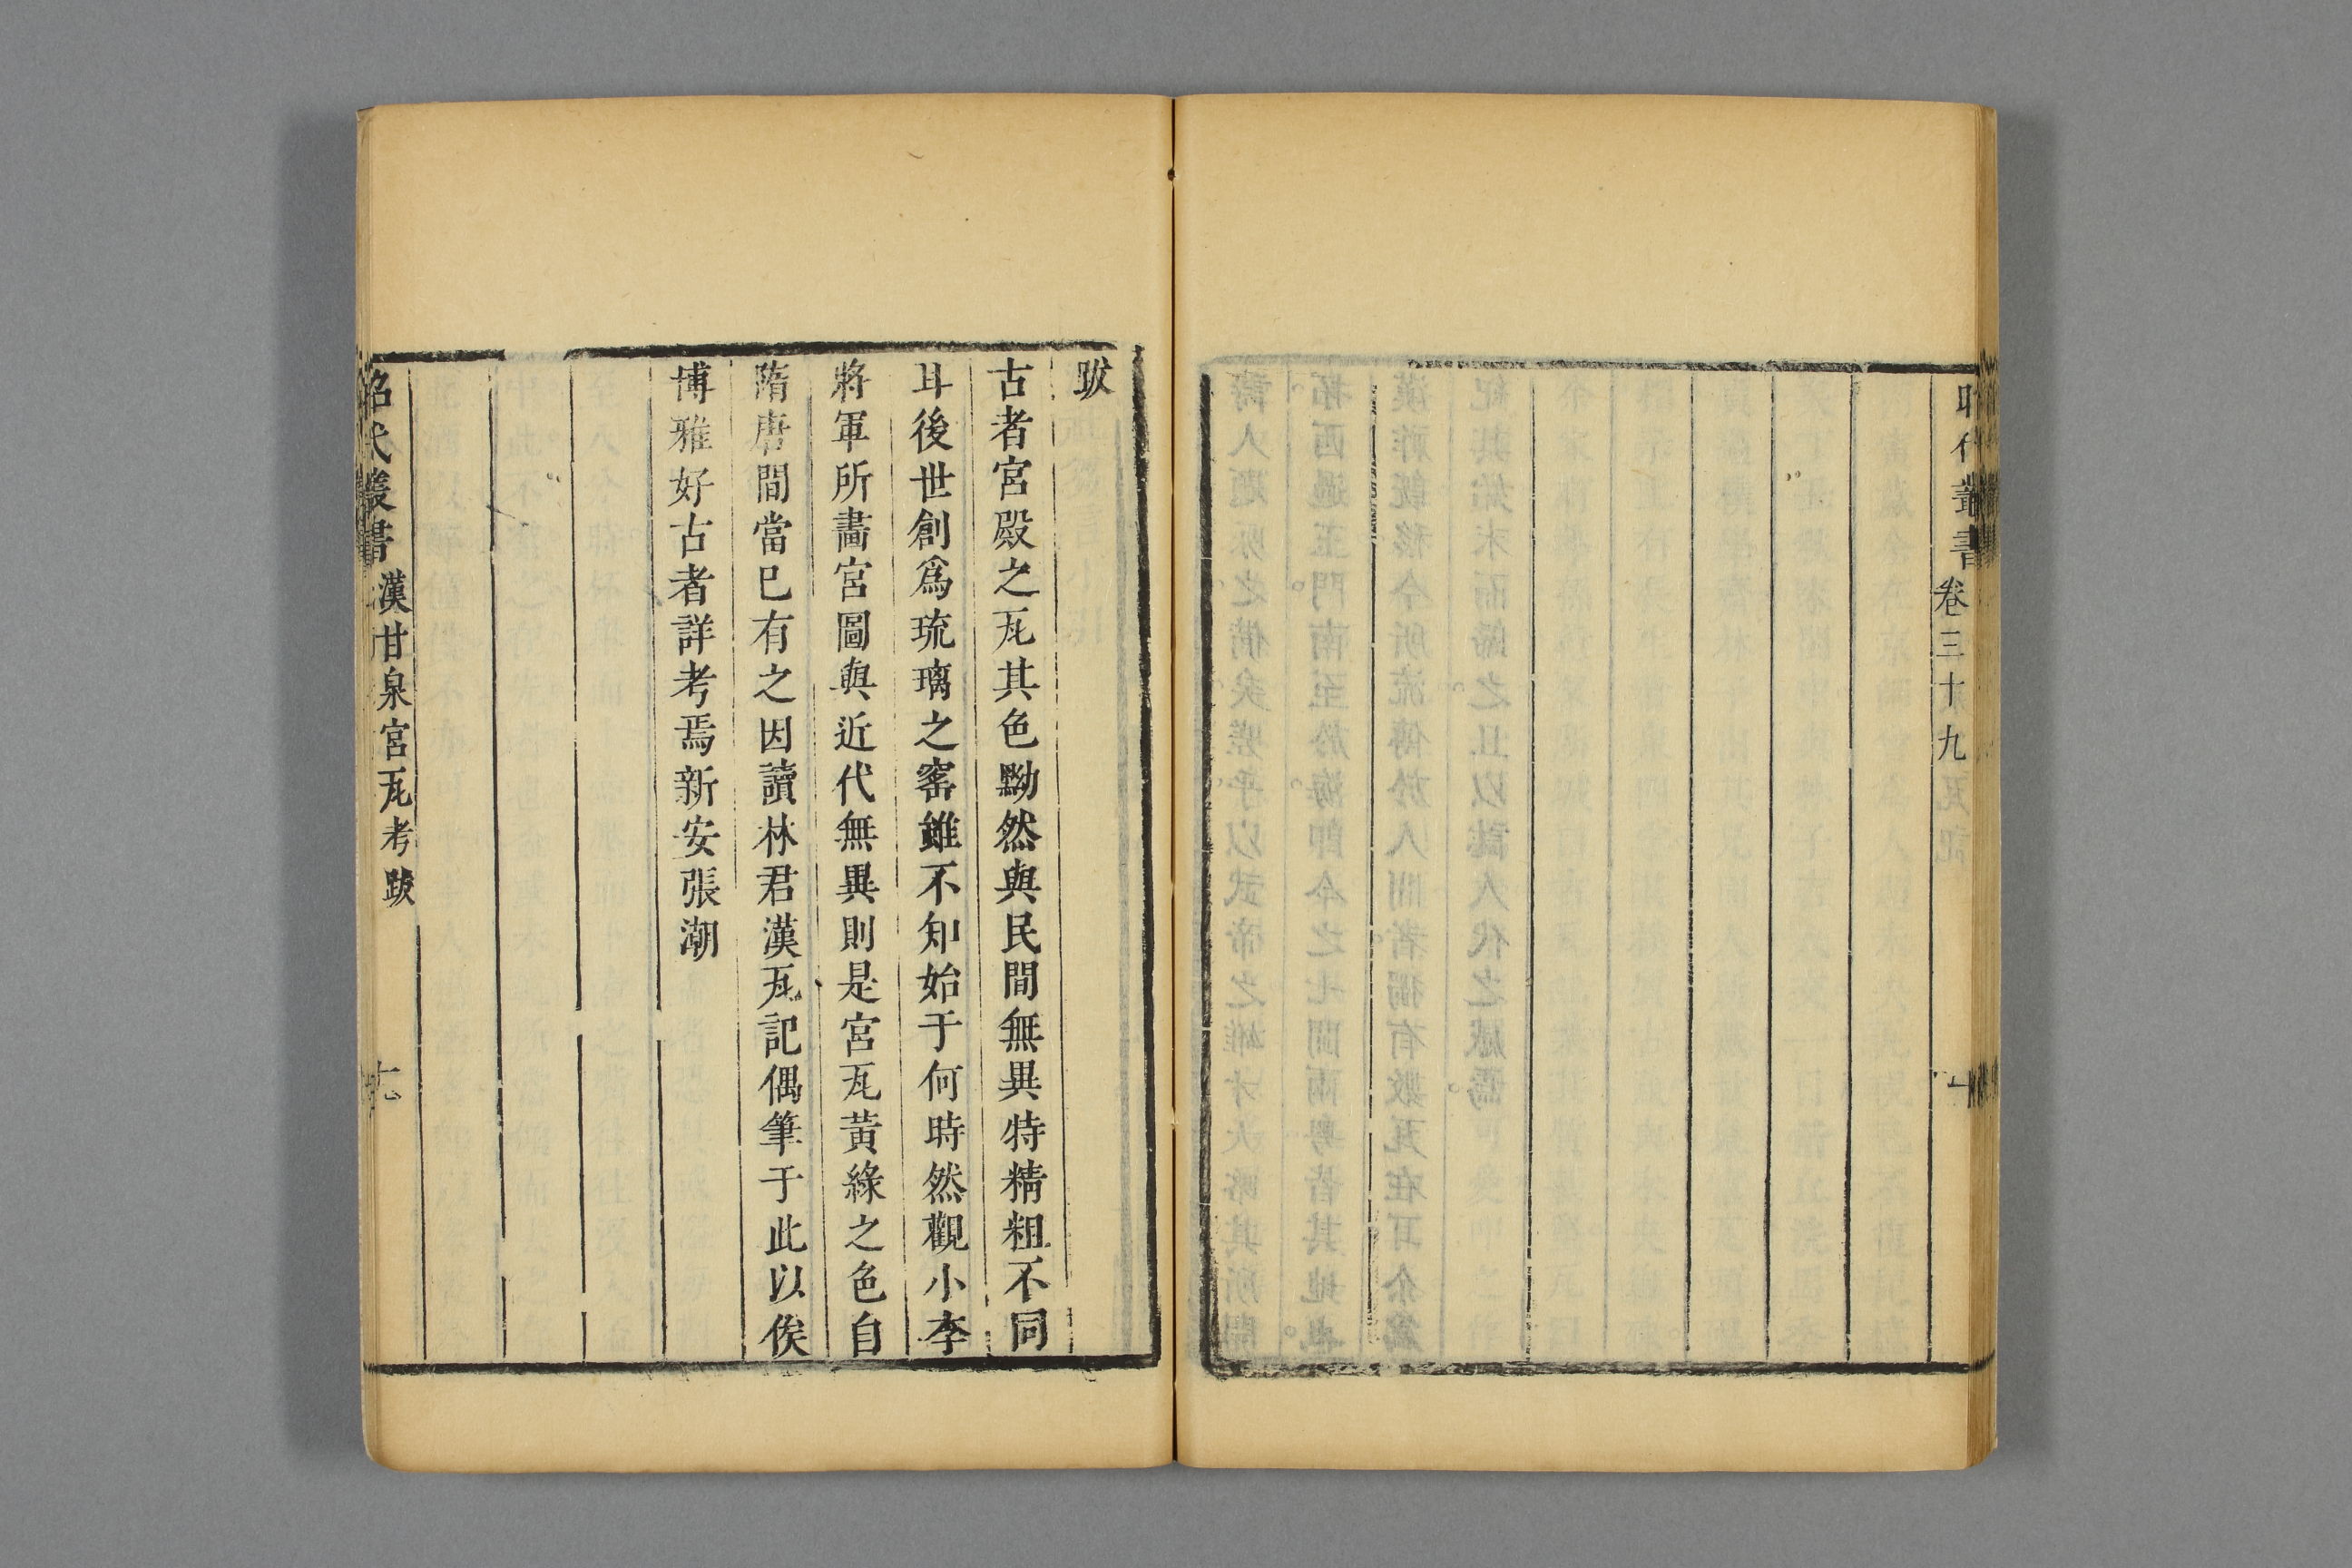 卷三十九
跋
古者宮殿之瓦其色黝然與民間無異特精粗不同
耳後世創爲琉璃之窰雖不知始于何時然觀小李
將軍所畫宮圖與近代無異則是宮瓦黃綠之色自
隋唐間當已有之因讀林君漢瓦記偶筆于此以俟
博雅好古者詳考焉新安張潮
昭代叢書 漢甘泉宮瓦考跋